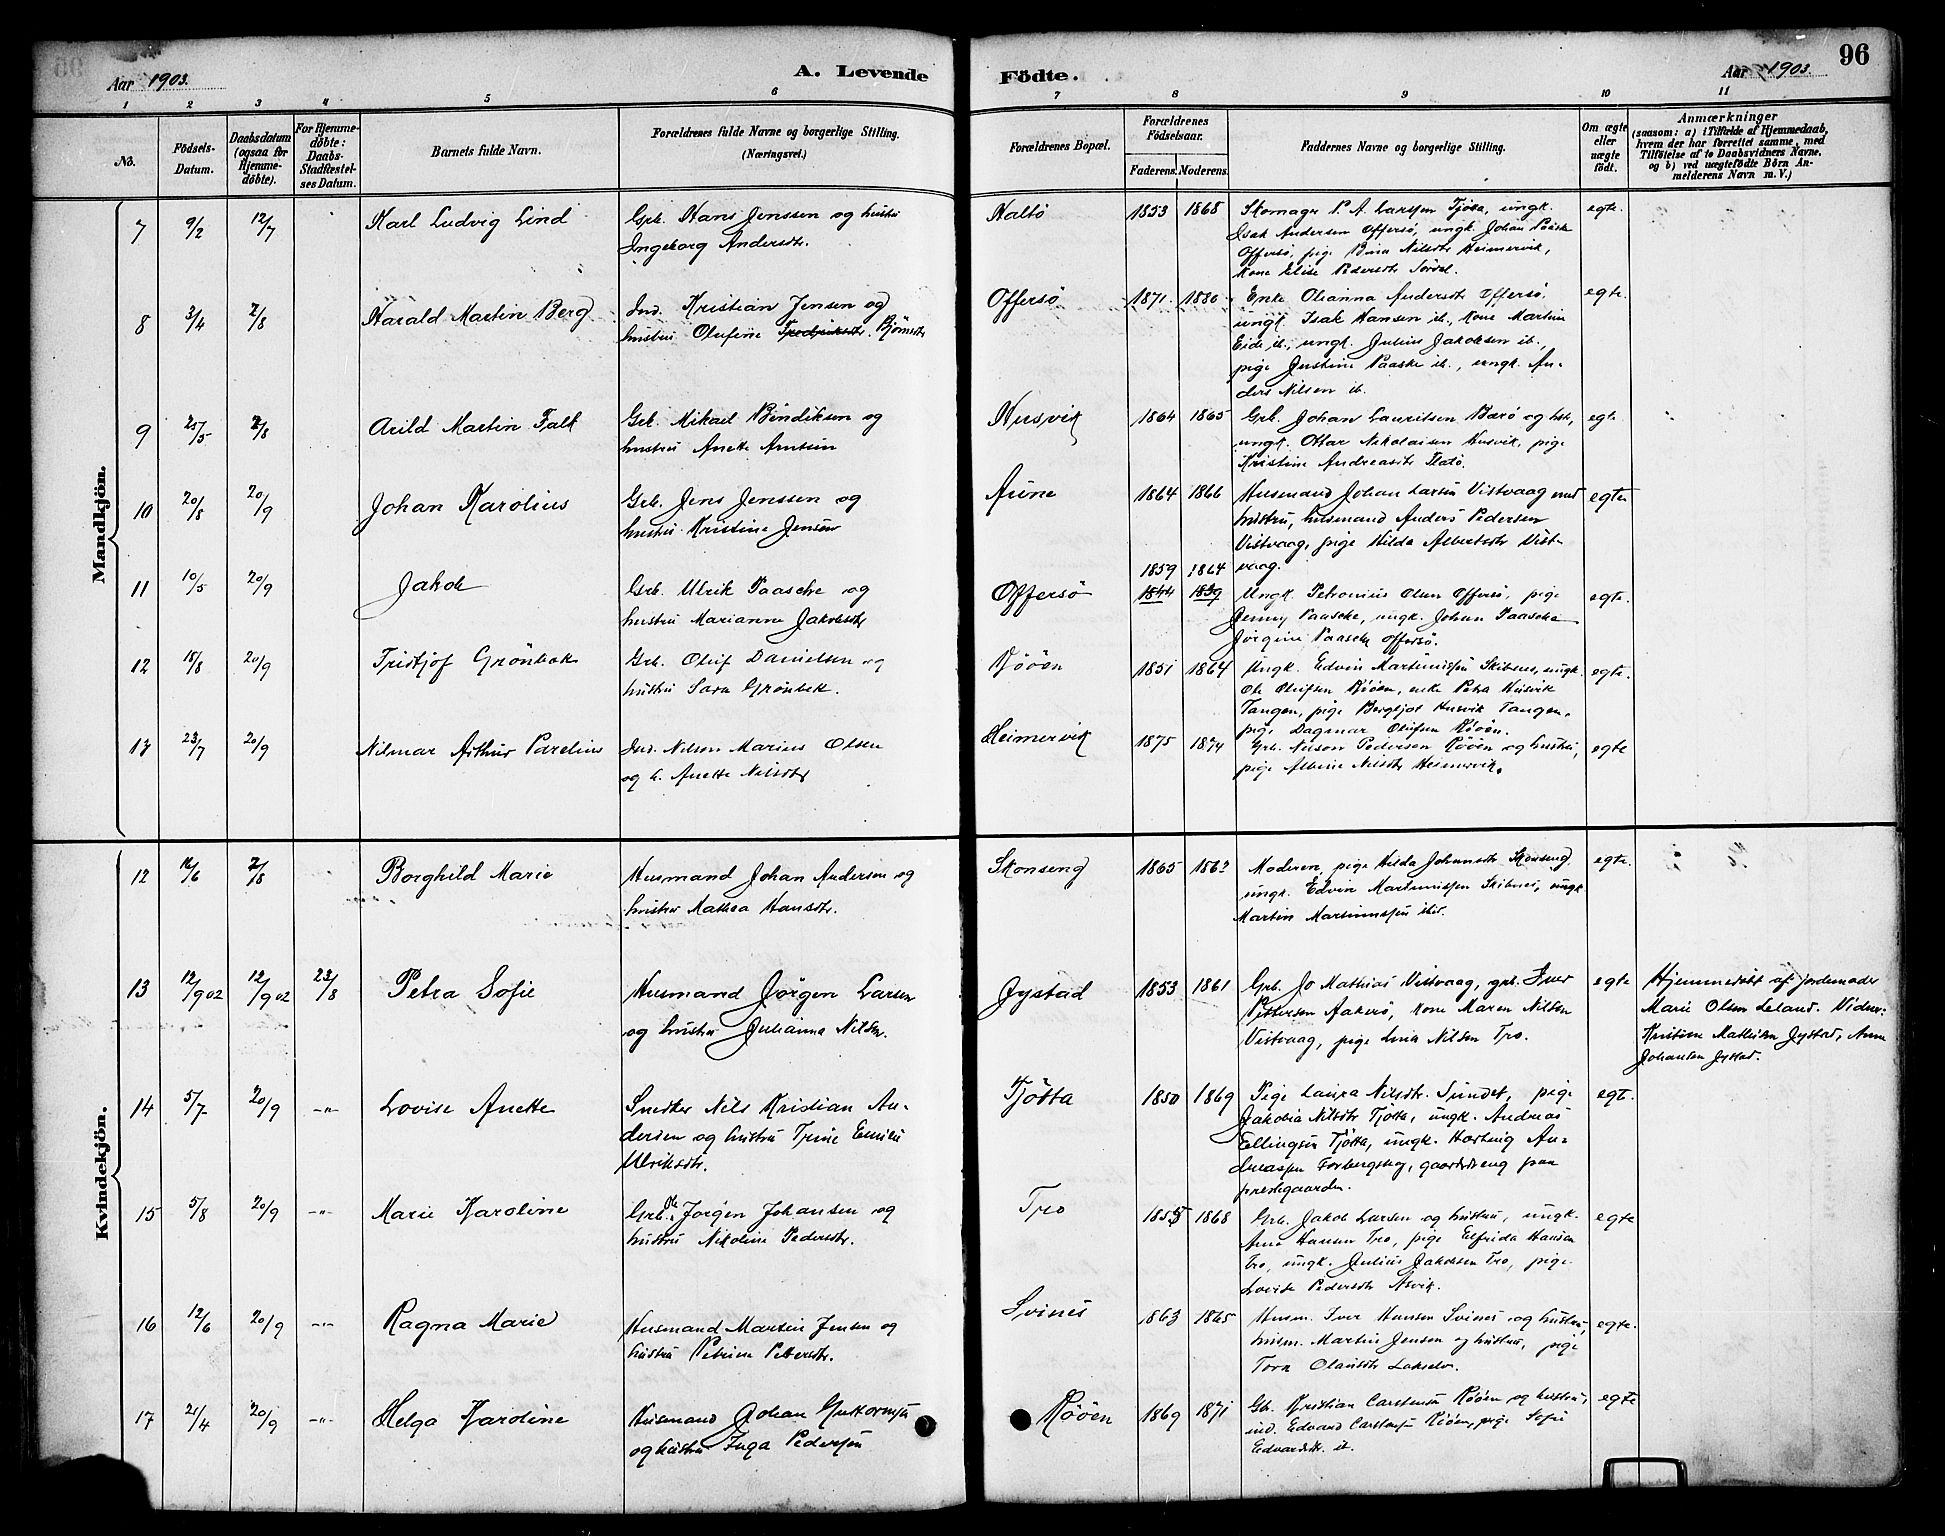 Aar 1903.
A. Levende
Födte.
Aar 1903.
96
1 2 3 4 5 6 7 8 9 10 11
No.
Födsels-Datum.
Daabsdatum (ogsaa for Hjemme-döbte).
For Hjemme-döbte: Daabs-Stadfæstel-ses Datum.
Barnets fulde Navn.
Forældrenes fulde Navne og borgerlige Stilling. (Næringsvei.)
Forældrenes Bopæl.
Forældrenes Födselsaar.
Faderens. Moderens.
Faddernes Navne og borgerlige Stilling.
Om ægte eller uægte födt.
Anmærkninger
(saasom: a) i Tilfælde af Hjemmedaab,
hvem der har forrettet samme, med
Tilföielse af to Daabsvidners Navne.
og b) ved uægtefödte Börn An-
melderens Navn m.V.)
Mandkjön.
7 9/2 12/7 Karl Ludvig Lind Grb. Hans Jenssen og hustru Naltö 1853 1868 Skomager P. A. Larssen Tjötta, ungk. egte.
Ingeborg Andersdtr. Isak Andersen Offersö, ungk. Johan Paaske
Offersö, pige Bina Nilsdtr Heimervik,
Kone Elise Pedersdtr Sördal.
8 3/4 2/8 Harald Martin Berg Ind. Kristian Jensen og Offersö 1871. 1880 Enke Olianna Andersdtr Offersö, egte.
hustru Olufine Fredriksdtr. Björnsdtr ungk. Isak Hansen ib., Kone Martin
Eide ib., ungk. Julius Jakobsen ib.,
pige Justine Paaske ib., ungk. An-
ders Nilsen ib.
9 25/5 2/8 Arild Martin Falk Grb. Mikael Bendiksen og Husvik 1864 1865 Grb. Johan Lauritsen Barö og hst., egte.
hustru Anette Arntsen ungk. Ottar Nikolaisen Husvik, pige
Kristine Andreasdtr Flatö.
10 20/8 20/9 Johan Karolius Grb. Jens Jenssen og Aune 1864 1866 Husmand Johan Larsen Vistvaag med egte
hustru Kristine Jensen hustru, husmand Anders Pedersen
Vistvaag, pige Hilda Albertsdtr Vist-
1859 1864 vaag.
11 10/5 20/9 Jakob Grb. Ulrik Paasche og Offersö 1844 1839 Ungk. Petronius Olsen Offersö, pige egte.
hustru Marianne Jakobsdtr Jenny Paasche, ungk. Johan Paasche
Jörgine Paasche Offersö.
12 18/8 20/9 Fristjof Grönbek Grb. Oluf Danielsen og Rööen 1851 1864 Ungk. Edvin Martinussen Skibnes, ungk. egte.
hustru Sara Grönbek. Ole Olufsen Rööen, enke Petra Husvik
Tangen, pige Bergljot Husvik Tangen,
pige Dagmar Olufsen Rööen.
13 23/7 20/9 Hilmar Arthur Parelius Ind. Nilson Marius Olsen Heimervik 1875 1874 Grb. Nilson Pedersen Rööen og hustru, egte
og h. Anette Nilsdtr pige Albine Nilsdtr Heimervik.
Kvindekjön.
12 16/6 2/8 Borghild Marie Husmand Johan Andersen og Skonseng 1865 1863 Moderen, pige Hilda Johansdtr Skonseng, egte.
hustru Mathea Hansdtr. ungk. Edvin Martinussen Skibnes, ungk
Martin Martinussen ibid.
13 12/9 02 12/9 02 23/8 Petra Sofie Husmand Jörgen Larsen Jystad 1853 1861 Grb. Jo Mathias Vistvaag, grb. Iver egte Hjemmedöbt af jordemoder
og hustru Julianna Nilsen. Pettersen Aakerö, kone Maren Nilsen Marie Olsen Leland. Vidner:
Vistvaag, pige Lina Nilsen Tro. Kristine Mathisen Jystad, Anne
Johansen Jystad.
14 5/7 20/9 -"- Lovise Anette Snedker Nils Kristian An- Tjötta 1850 1869 Pige Laura Nilsdtr. Sundet, pige egt.
dersen og hustru Trine Emilie Jakobia Nilsdtr Tjötta, ungk. Andreas
Ulriksdtr. Ellingsen Tjötta, ungk. Hartvig An-
dreassen Forbergskog, gaardsdreng paa
prestegaarden.
15 5/8 20/9 -"- Marie Karoline Grb. Ole Jörgen Johansen og Tro 1855 1868 Grb. Jakob Larsen og hustru, ungk. egte
hustru Nikoline Pedersdtr. Arne Hansen Tro, pige Elfrida Hansen
Tro, ungk. Julius Jakobsen Tro, pige
Lovise Pedersdtr Asvik.
16 12/6 20/9 -"- Ragna Marie Husmand Martin Jensen og Svines 1863 1865 Husm. Iver Hansen Svines og hustru, egte.
hustru Petrine Pettersdtr. husm. Martin Jensen og hustru, pige
Tora Olausdtr Lakselv.
17 21/4 20/9 -"- Helga Karoline Husmand Johan Guttormsen Rööen 1869 1871 Gb. Kristian Carstensen Rööen og hustru, egte
og hustru Inga Pedersen ind. Edvard Carstensen Rööen, pige Sofie
Edvardsdtr. ib.